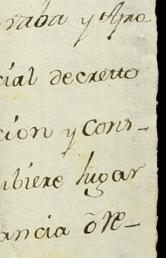 raba y Apro
cial decretto
cion y cons-
ubiere lugar
ancia óre-